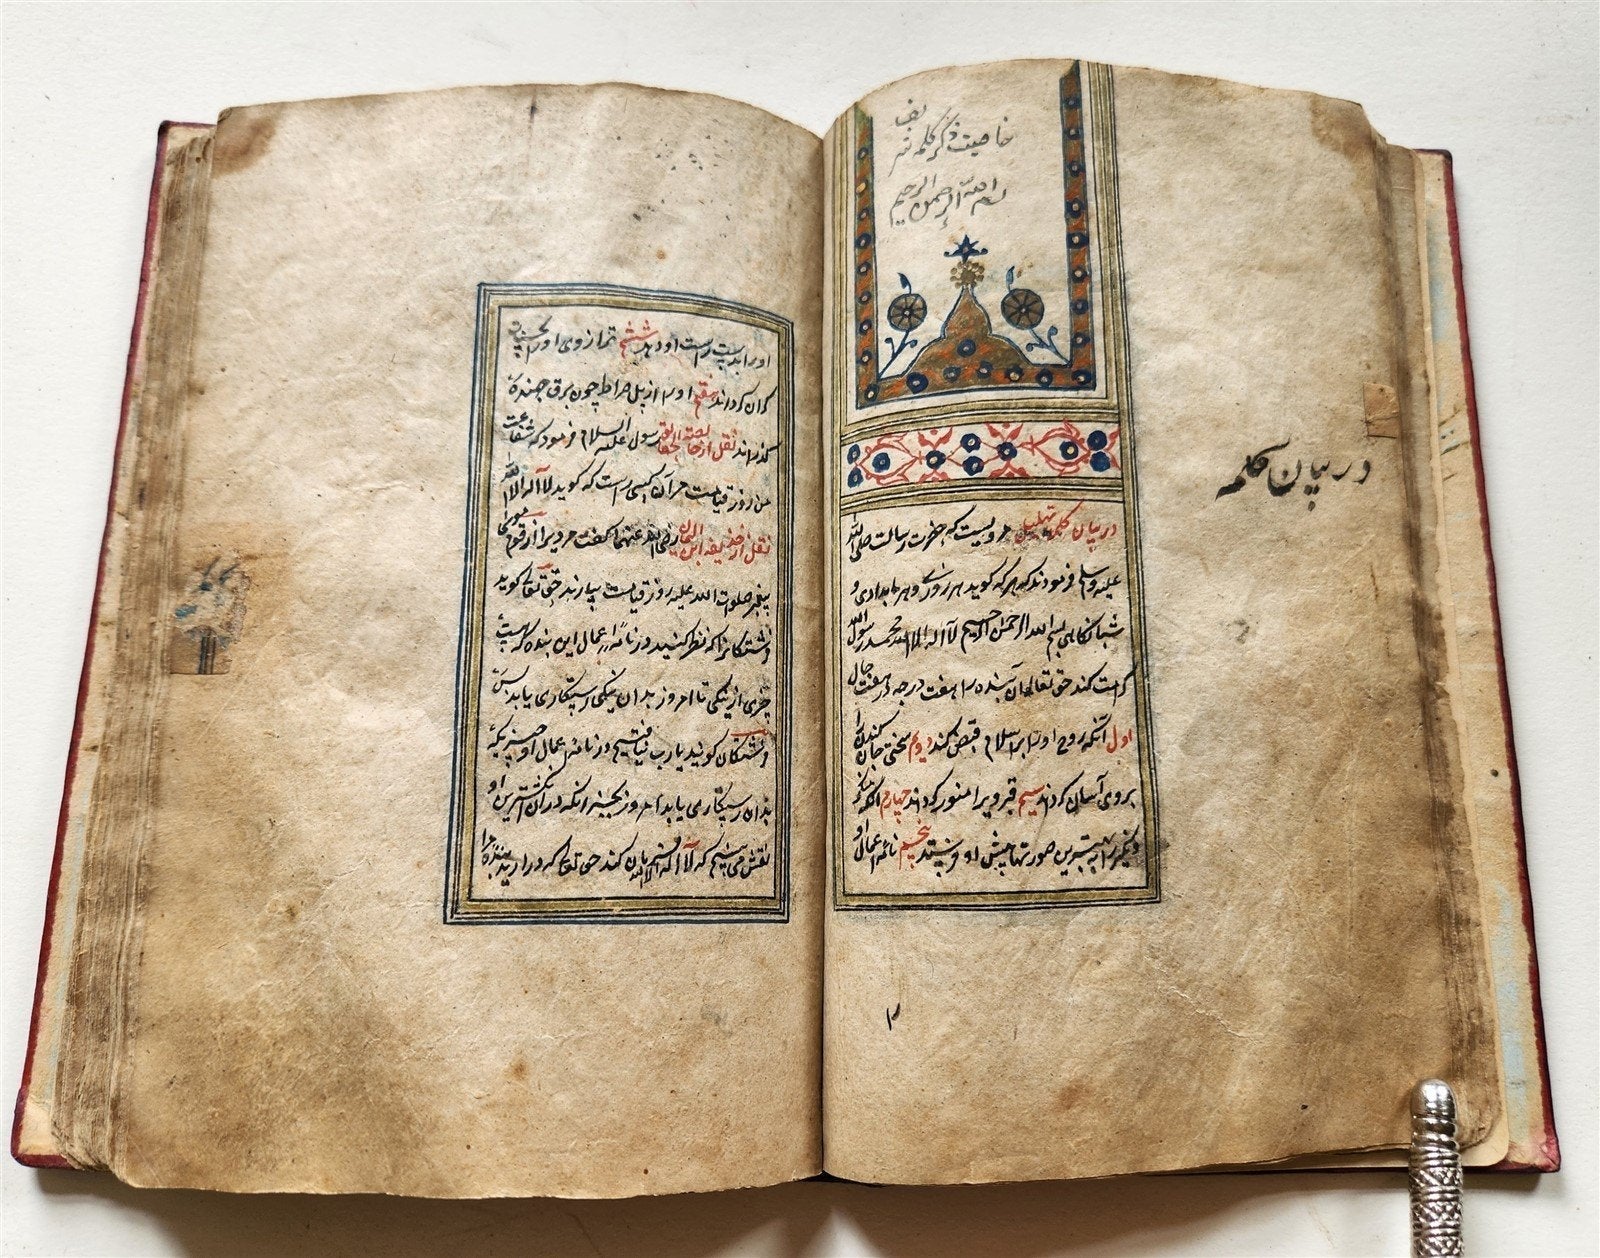 خاصیت ذکر کلمه شریف
بسم الله الرحمن الرحیم
در بیان کلمه تهلیل مرویست که حضرت رسالت صلی الله
علیه وسلم فرمودند که هر که کوید هر روزی وهر بامدادی و
شبانکاهی بسم الله الرحمن الرحیم لا اله الا الله محمد رسول الله
کرامت کند حق تعالی آن بنده را هفت درجه در هفت حال
اول آنکه روح او را بر اسلام قبض کند دویم سختی جان کندن را
بروی آسان کرداند سیم قبر ویرا منور کرداند چهارم آنکه منکر
ونکیر را به بهترین صورتها پیش او فرستد پنجم نامه اعمال او
در بیان کلمه
۲
او را بدست راست او دهد ششم ترازوی او را
کران کرداند هفتم او را از پل صراط چون برق جهنده
کذراند نقل از خالصة الحقایق رسول علیه السلام فرمود که شفاعت
من روز قیامت مر آن کسی راست که کوید لا اله الا الله
نقل از حذیفه ابن الیمان رضی الله عنهما کفت مردیرا از قوم موسی
پیغمبر صلوات الله علیه روز قیامت بیارند حق تعالی کوید
فرشتکانرا که نظر کنید در نامه اعمال این بنده که هیچ
چیزی از نیکی تا امروز بدان نیکی رستکاری یابد پس
فرشتکان کویند یارب نیافتیم در نامه اعمال او چیزیکه
بدان رستکاری یابد امروز بجز آنکه در انکشترین او
نقش می بینیم که لا اله الا الله فرمان کند حق تعالی که در ارید بنده مرا